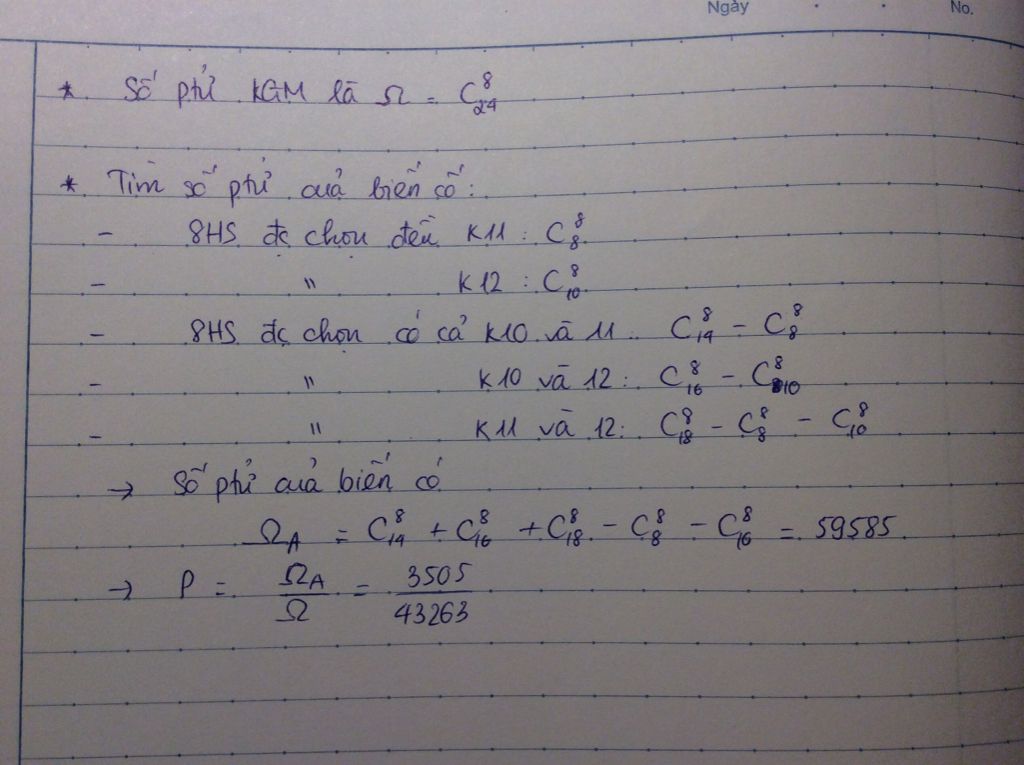 Ngày . . No.
* Số ptử KGM là Ω = C⁸₂₄
* Tìm số ptử của biến cố:
- 8HS đc chọn đều K11 : C⁸₈
- " K12 : C⁸₁₀
- 8HS đc chọn có cả K10 và 11: C⁸₁₄ - C⁸₈
- " K10 và 12: C⁸₁₆ - C⁸₁₀
- " K11 và 12: C⁸₁₈ - C⁸₈ - C⁸₁₀
→ Số ptử của biến có
Ω_A = C⁸₁₄ + C⁸₁₆ + C⁸₁₈ - C⁸₈ - C⁸₁₆ = 59585
→ P = Ω_A/Ω = 3505/43263